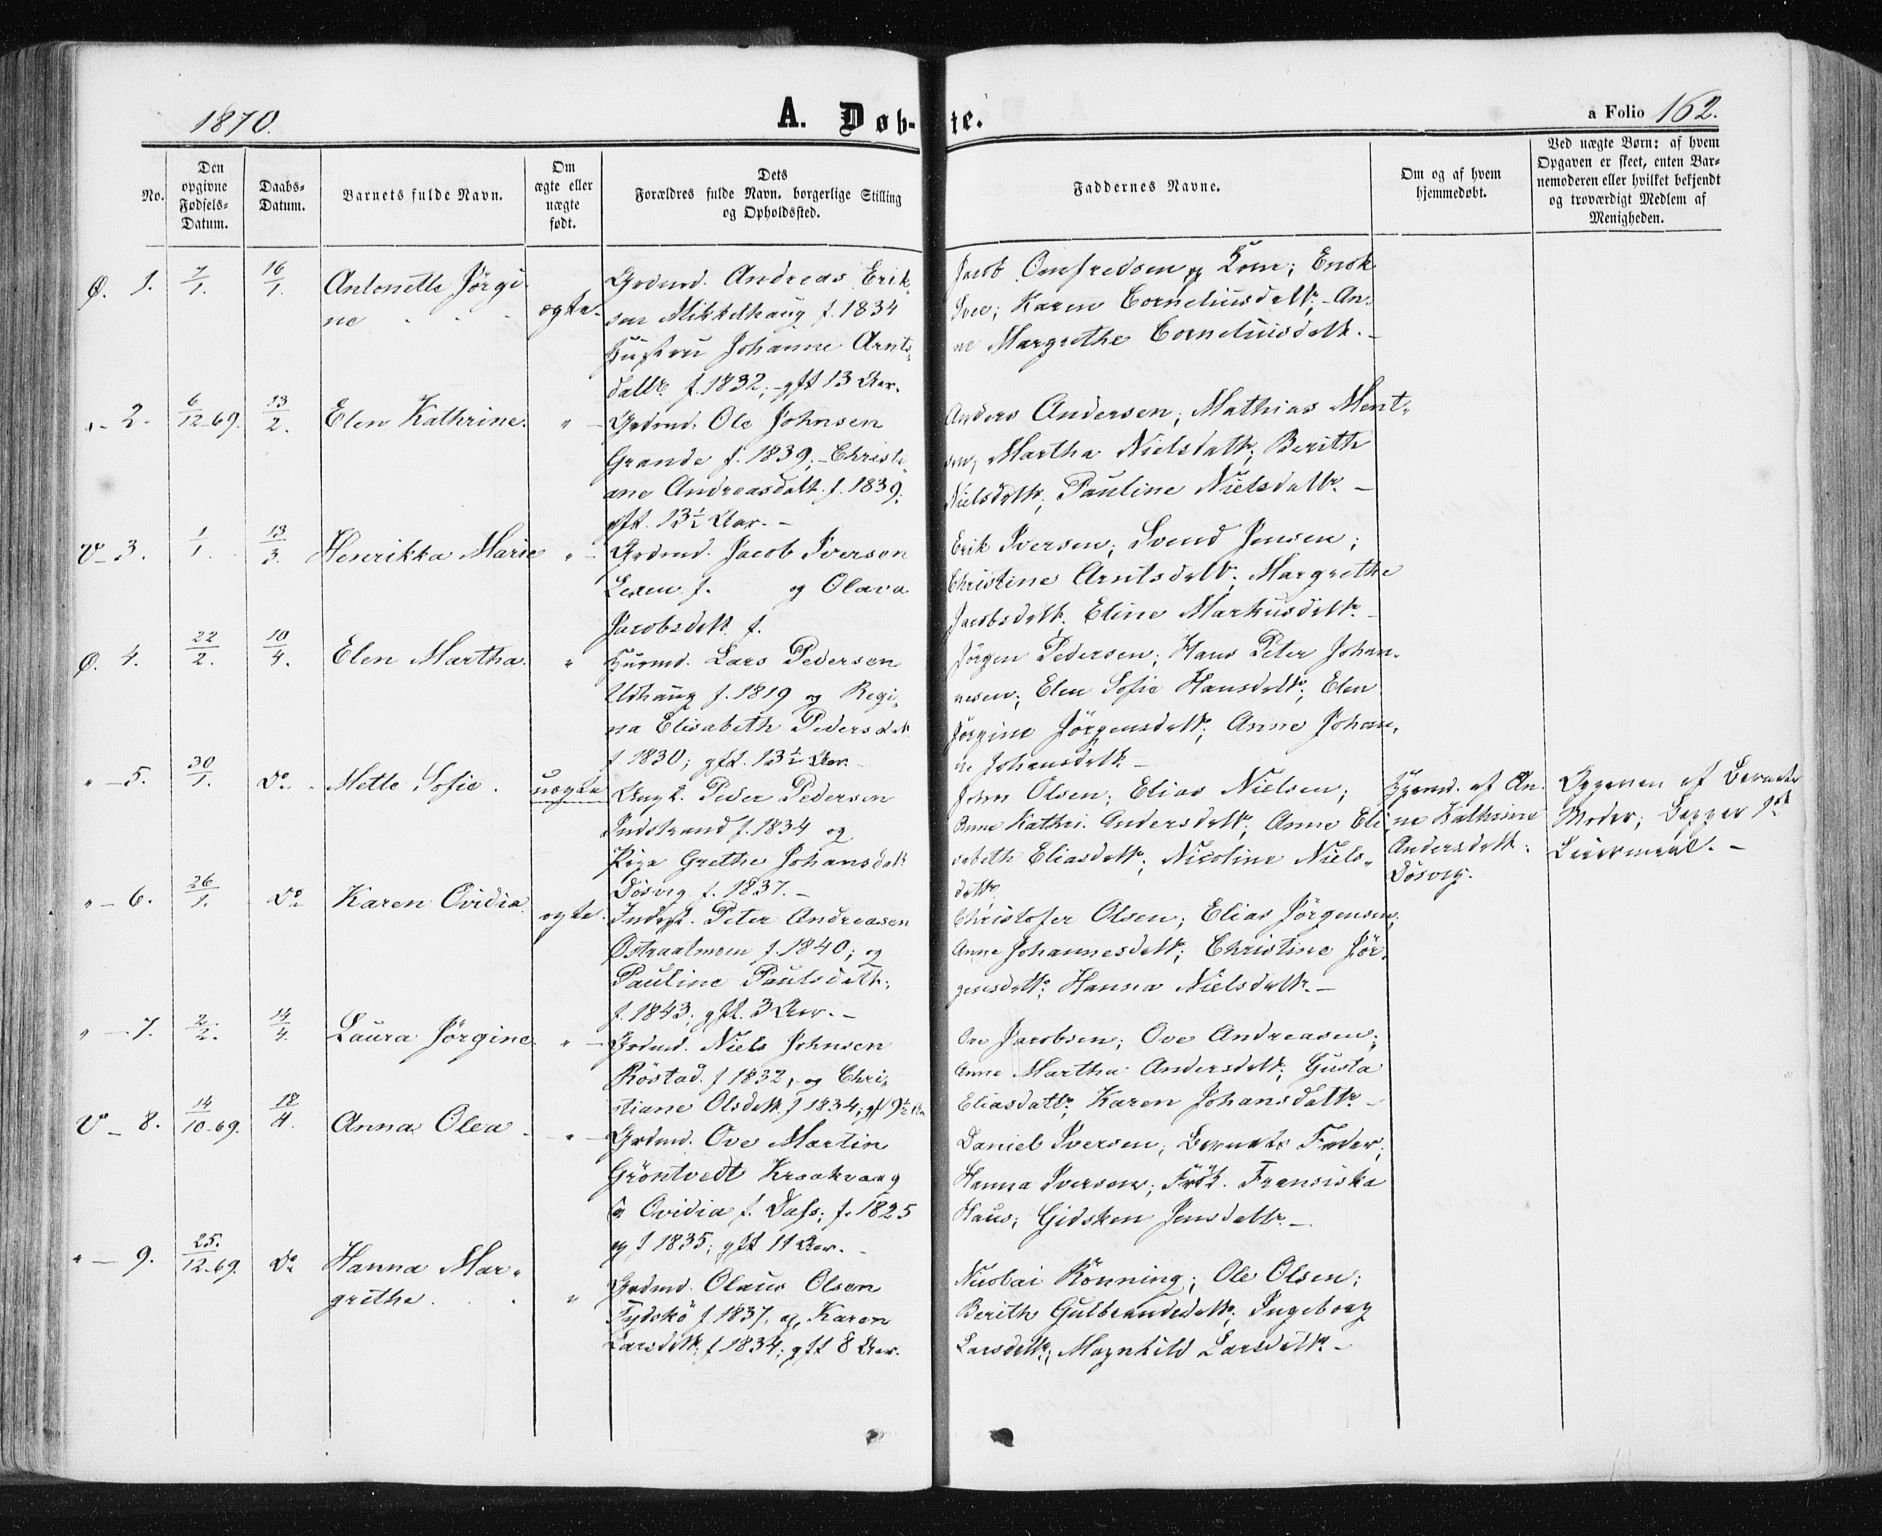 1870.
A. Døb-
te.
a Folio 162.
No.
Den opgivne Fødsels-Datum.
Daabs-Datum.
Barnets fulde Navn.
Om ægte eller uægte født.
Dets Forældres fulde Navn, borgerlige Stilling og Opholdssted.
Faddernes Navne.
Om og af hvem hjemmedøbt.
Ved uægte Børn: af hvem Opgaven er skeet, enten Barnemoderen eller hvilket bekjendt og troværdigt Medlem af Menigheden.
Ø. 1. 7/1. 16/1. Antonette Jørgi-
ne ægte.
Grdmd. Andreas Erik-
sen Mikkelhaug f. 1834
Hustru Johanne Arnts-
datt. f. 1832; gft 13 Aar.
Jacob og Kone; Enok
Karen Corneliusdatt. An-
ne Margrethe Corneliusdatt. –
"- 2. 6/12-69. 13/2. Elen Kathrine. "
Grdmd. Ole Johnsen
Grande f. 1839; Christi-
ane Andreasdatt. f. 1839;
gft. 13½ Aar. –
Anders Andersen; Mathias Ment-
sen; Martha Nielsdatt; Berith
Nielsdatt; Pauline Nielsdatt. –
V- 3. 1/1. 13/3. Henrikka Marie "
Grdmd. Jacob Iversen
Lexen f. og Olava
Jacobsdatt. f.
Erik Iversen; Svend Jensen;
Christine Arntsdatt; Margrethe
Jacobsdatt. Eline Markusdatt. –
Ø. 4. 22/2. 10/4. Elen Martha. "
Huusmd. Lars Pedersen
Uthaug f. 1819 og Regi-
na Elisabeth Pedersdatt
f. 1830; gft. 13½ Aar.
Jørgen Pedersen; Hans Peter Johan-
nesen; Elen Sofie Hansdatt; Elen
Jørgine Jørgensdatt; Anne Johan-
ne Johansdatt –
"- 5. 30/1. Do. Mette Sofie. uægte
Ungk. Peder Pedersen
Indstrand f. 1834 og
Pige Grethe Johansdatt
Døsvig f. 1837. –
John Olsen; Elias Nielsen;
Anne Kathri. Andersdatt; Anne Eli-
sabeth Eliasdatt; Nicoline Niels-
datt.
Hjemd. af An-
ne Kathrine
Andersdatt.
Døsvig.
Opgaven af Barnets
Moder; Begges 1ste
Leiermaal. –
"- 6. 26/1. Do. Karen Ovidia. ægte.
Inderst. Peter Andreasen
Østraatmoen f. 1840; og
Pauline Paulsdatt.
f. 1843. gft. 3 Aar. –
Christofer Olsen; Elias Jørgensen;
Anne Johannesdatt; Christine Jør-
gensdatt; Hanna Nielsdatt. –
"- 7. 2/2. 14/4. Laura Jørgine. "
Grdmd. Niels Johnsen
Røstad. f. 1832, og Chri-
stiane Olsdatt f 1834; gft 9½ Aar
Ove Jacobsen; Ove Andreasen;
Anne Martha Andersdatt; Gusta
Eliasdatt; Karen Johansdatt. –
V- 8. 14/10-69. 18/4. Anna Olea "
Grdmd. Ove Martin
Grøntvedt Kraakvaag
& Ovidia f. Dass; f. 1825
og f 1835; gft 11 Aar. –
Daniel Iversen; Barnets Fader;
Hanna Iversen; Frøk. Fransiska
Haus; Gidsken Jensdatt. –
"- 9. 25./12-69. Do Hanna Mar-
grethe. "
Grdmd. Olaus Olsen
Tydskø f. 1837. og Karen
Larsdatt; f 1834; gft 8 Aar.
Nicolai Rønning; Ole Olsen;
Berith Gulbrandsdatt; Ingeborg
Larsdatt; Magnhild Larsdatt. –